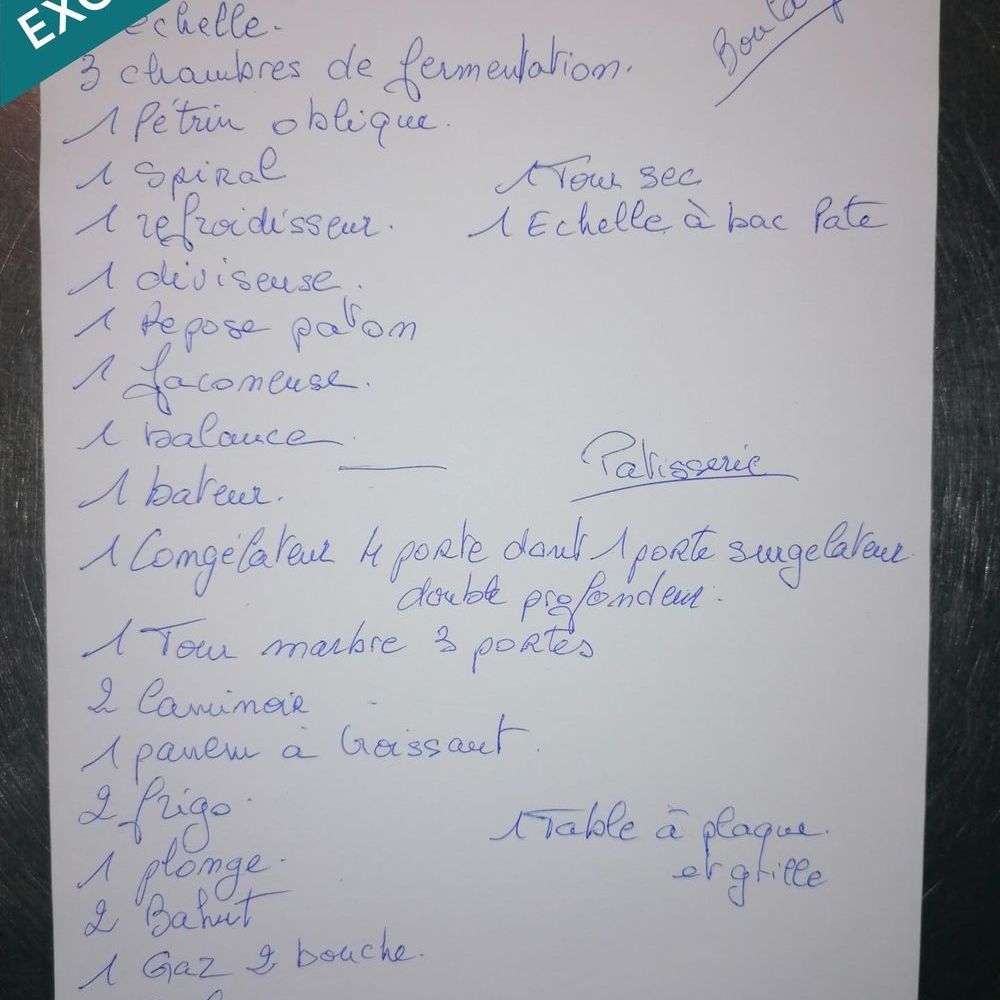 EXC
echelle.
Boula
3 chambres de fermentation.
1 Pétrin oblique.
1 Spiral
1 Tour sec
1 refroidisseur.
1 Echelle à bac Pate
1 diviseuse.
1 Repose paton
1 faconeuse.
1 balance
Patisserie
1 bateur.
1 Congélateur 4 porte dont 1 porte surgelateur
double profondeur.
1 Tour marbre 3 portes
2 laminoir
1 paneau à Croissant.
2 frigo
1 Table à plaque.
et grille
1 plonge.
2 Bahut
1 Gaz 2 bouche.